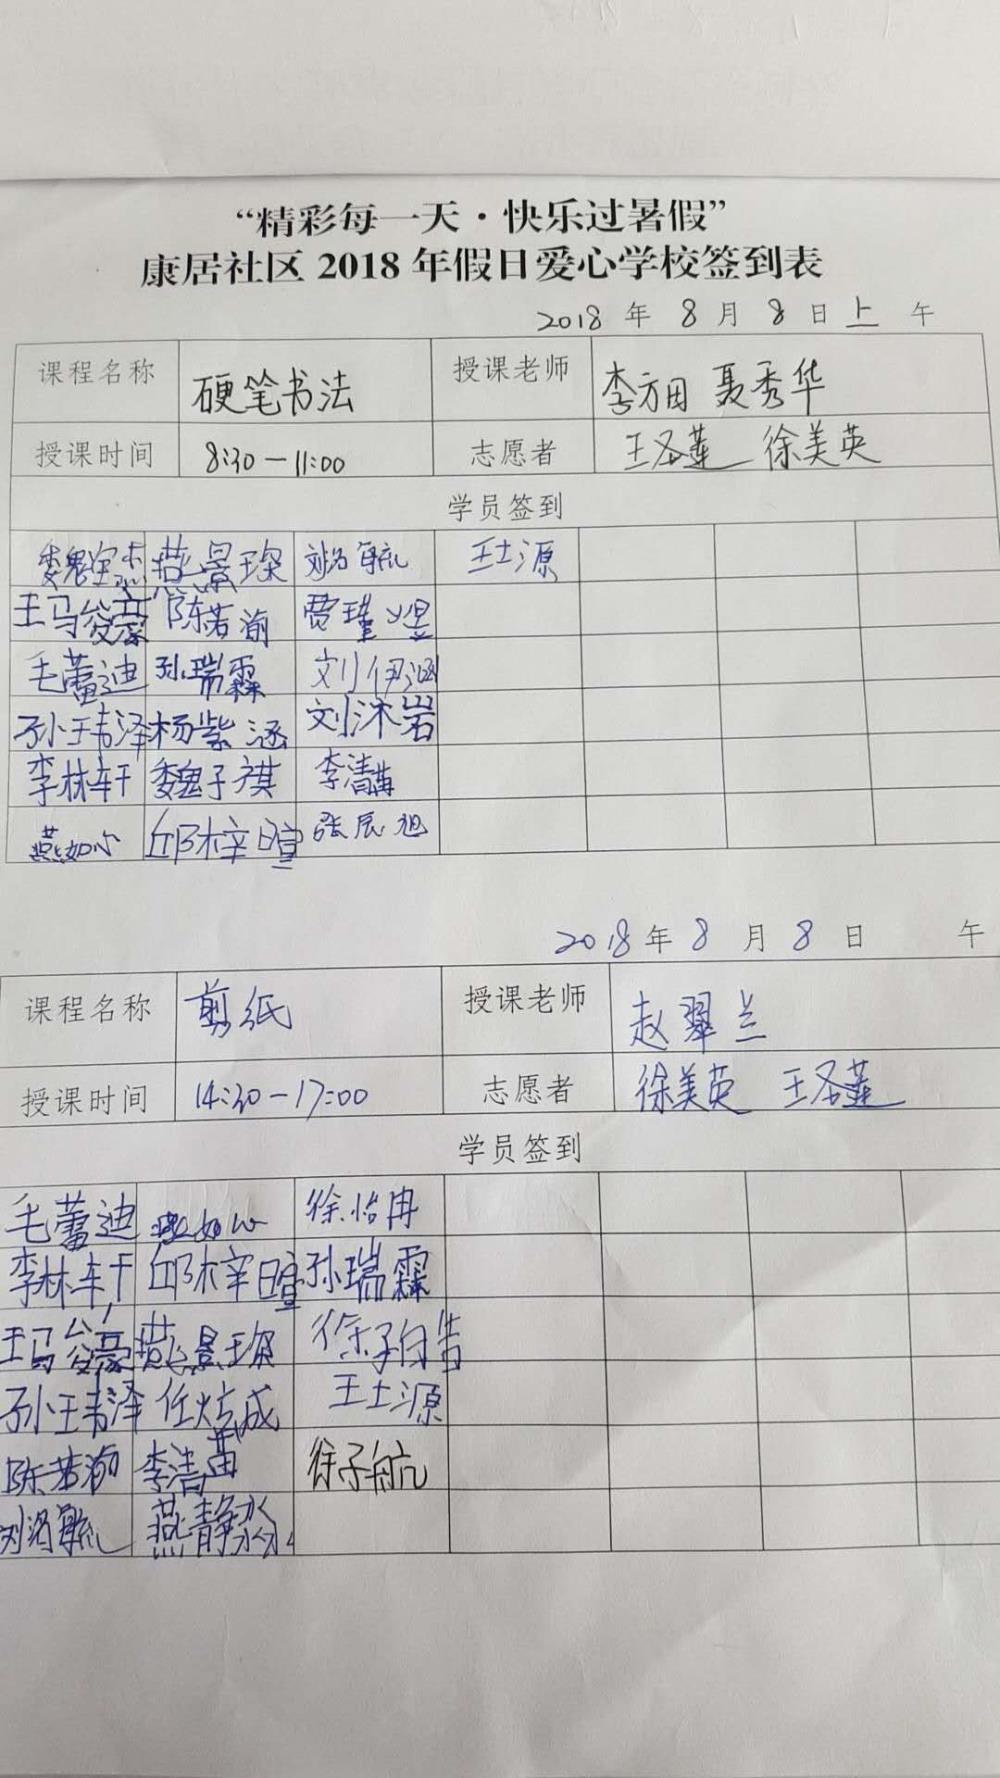 “精彩每一天·快乐过暑假”
康居社区 2018 年假日爱心学校签到表
2018 年 8 月 8 日 上 午
课程名称 硬笔书法 授课老师 李方田 聂秀华
授课时间 8:30-11:00 志愿者 王洛莲 徐美英
学员签到
燕景琛 刘洛毓 王士源
王马俊豪 陈若渝 贾瑾煜
毛蕾迪 孙瑞霖 刘伊涵
孙王韦泽 杨紫涵 刘沐岩
李林轩 魏子祺 李清菁
燕如心 邱梓暄 张辰旭
2018 年 8 月 8 日 午
课程名称 剪纸 授课老师 赵翠兰
授课时间 14:30-17:00 志愿者 徐美英 王洛莲
学员签到
毛蕾迪 燕如心 徐怡冉
李林轩 邱梓暄 孙瑞霖
王马俊豪 燕景琛 徐子皓
孙王韦泽 任炫成 王士源
陈若渝 李清菁 徐子航
刘洛毓 燕静淼